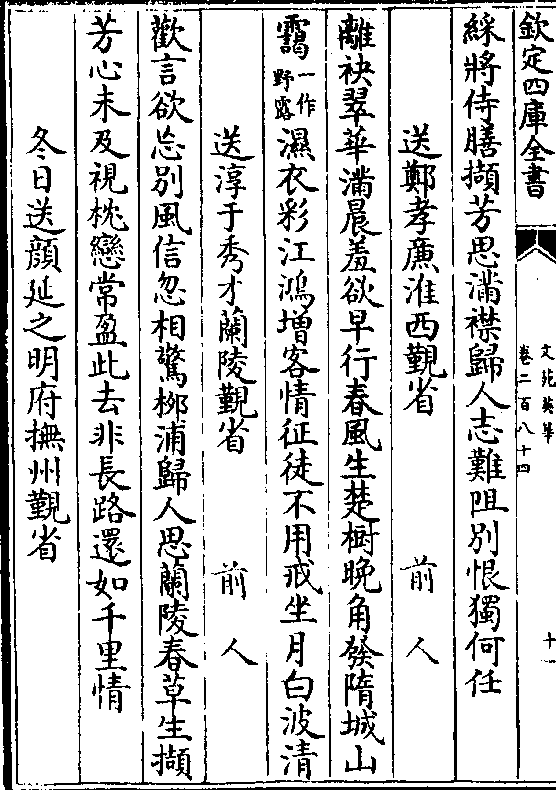 欽定四庫全書
文苑英華
卷二百八十四
十一
綵將侍膳擷芳思滿襟歸人志難阻别恨獨何任
送鄭孝廉淮西覲省 前人
離袂翠華滿晨羞欲早行春風生楚樹晚角發隋城山
靄一作野露濕衣彩江鴻增客情征徒不用戒坐月白波清
送淳于秀才蘭陵覲省 前人
歡言欲忘别風信忽相驚栁浦歸人思蘭陵春草生擷
芳心未及視枕戀常盈此去非長路還如千里情
冬日送顔延之明府撫州覲省